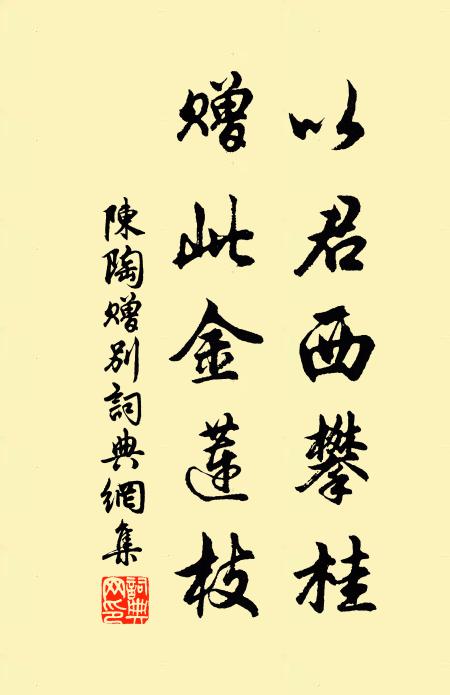 以君西攀桂
赠此金莲枝
陳陶赠别詞典網集
詞典網印